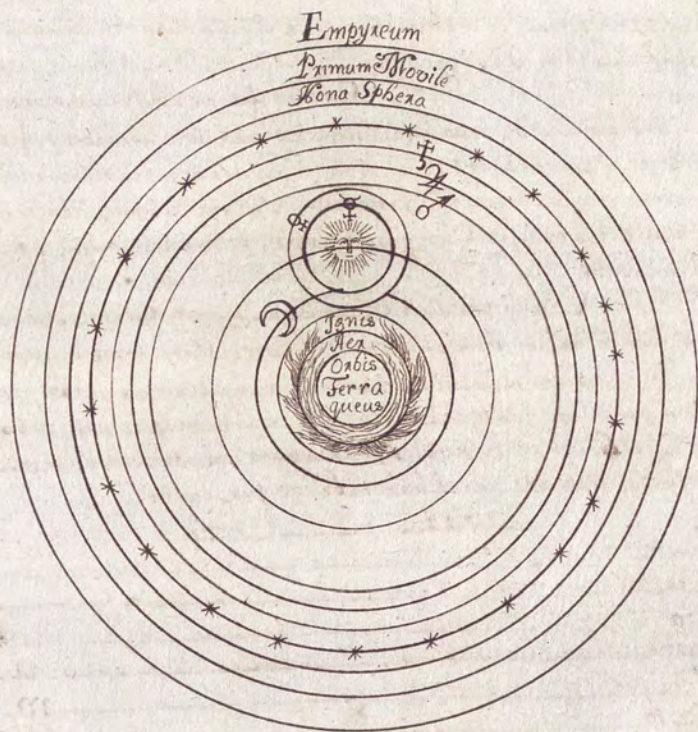 Empyreum
Primum Movile
Nona Sphera
Ignis
Aer
Orbis
Terra
queus